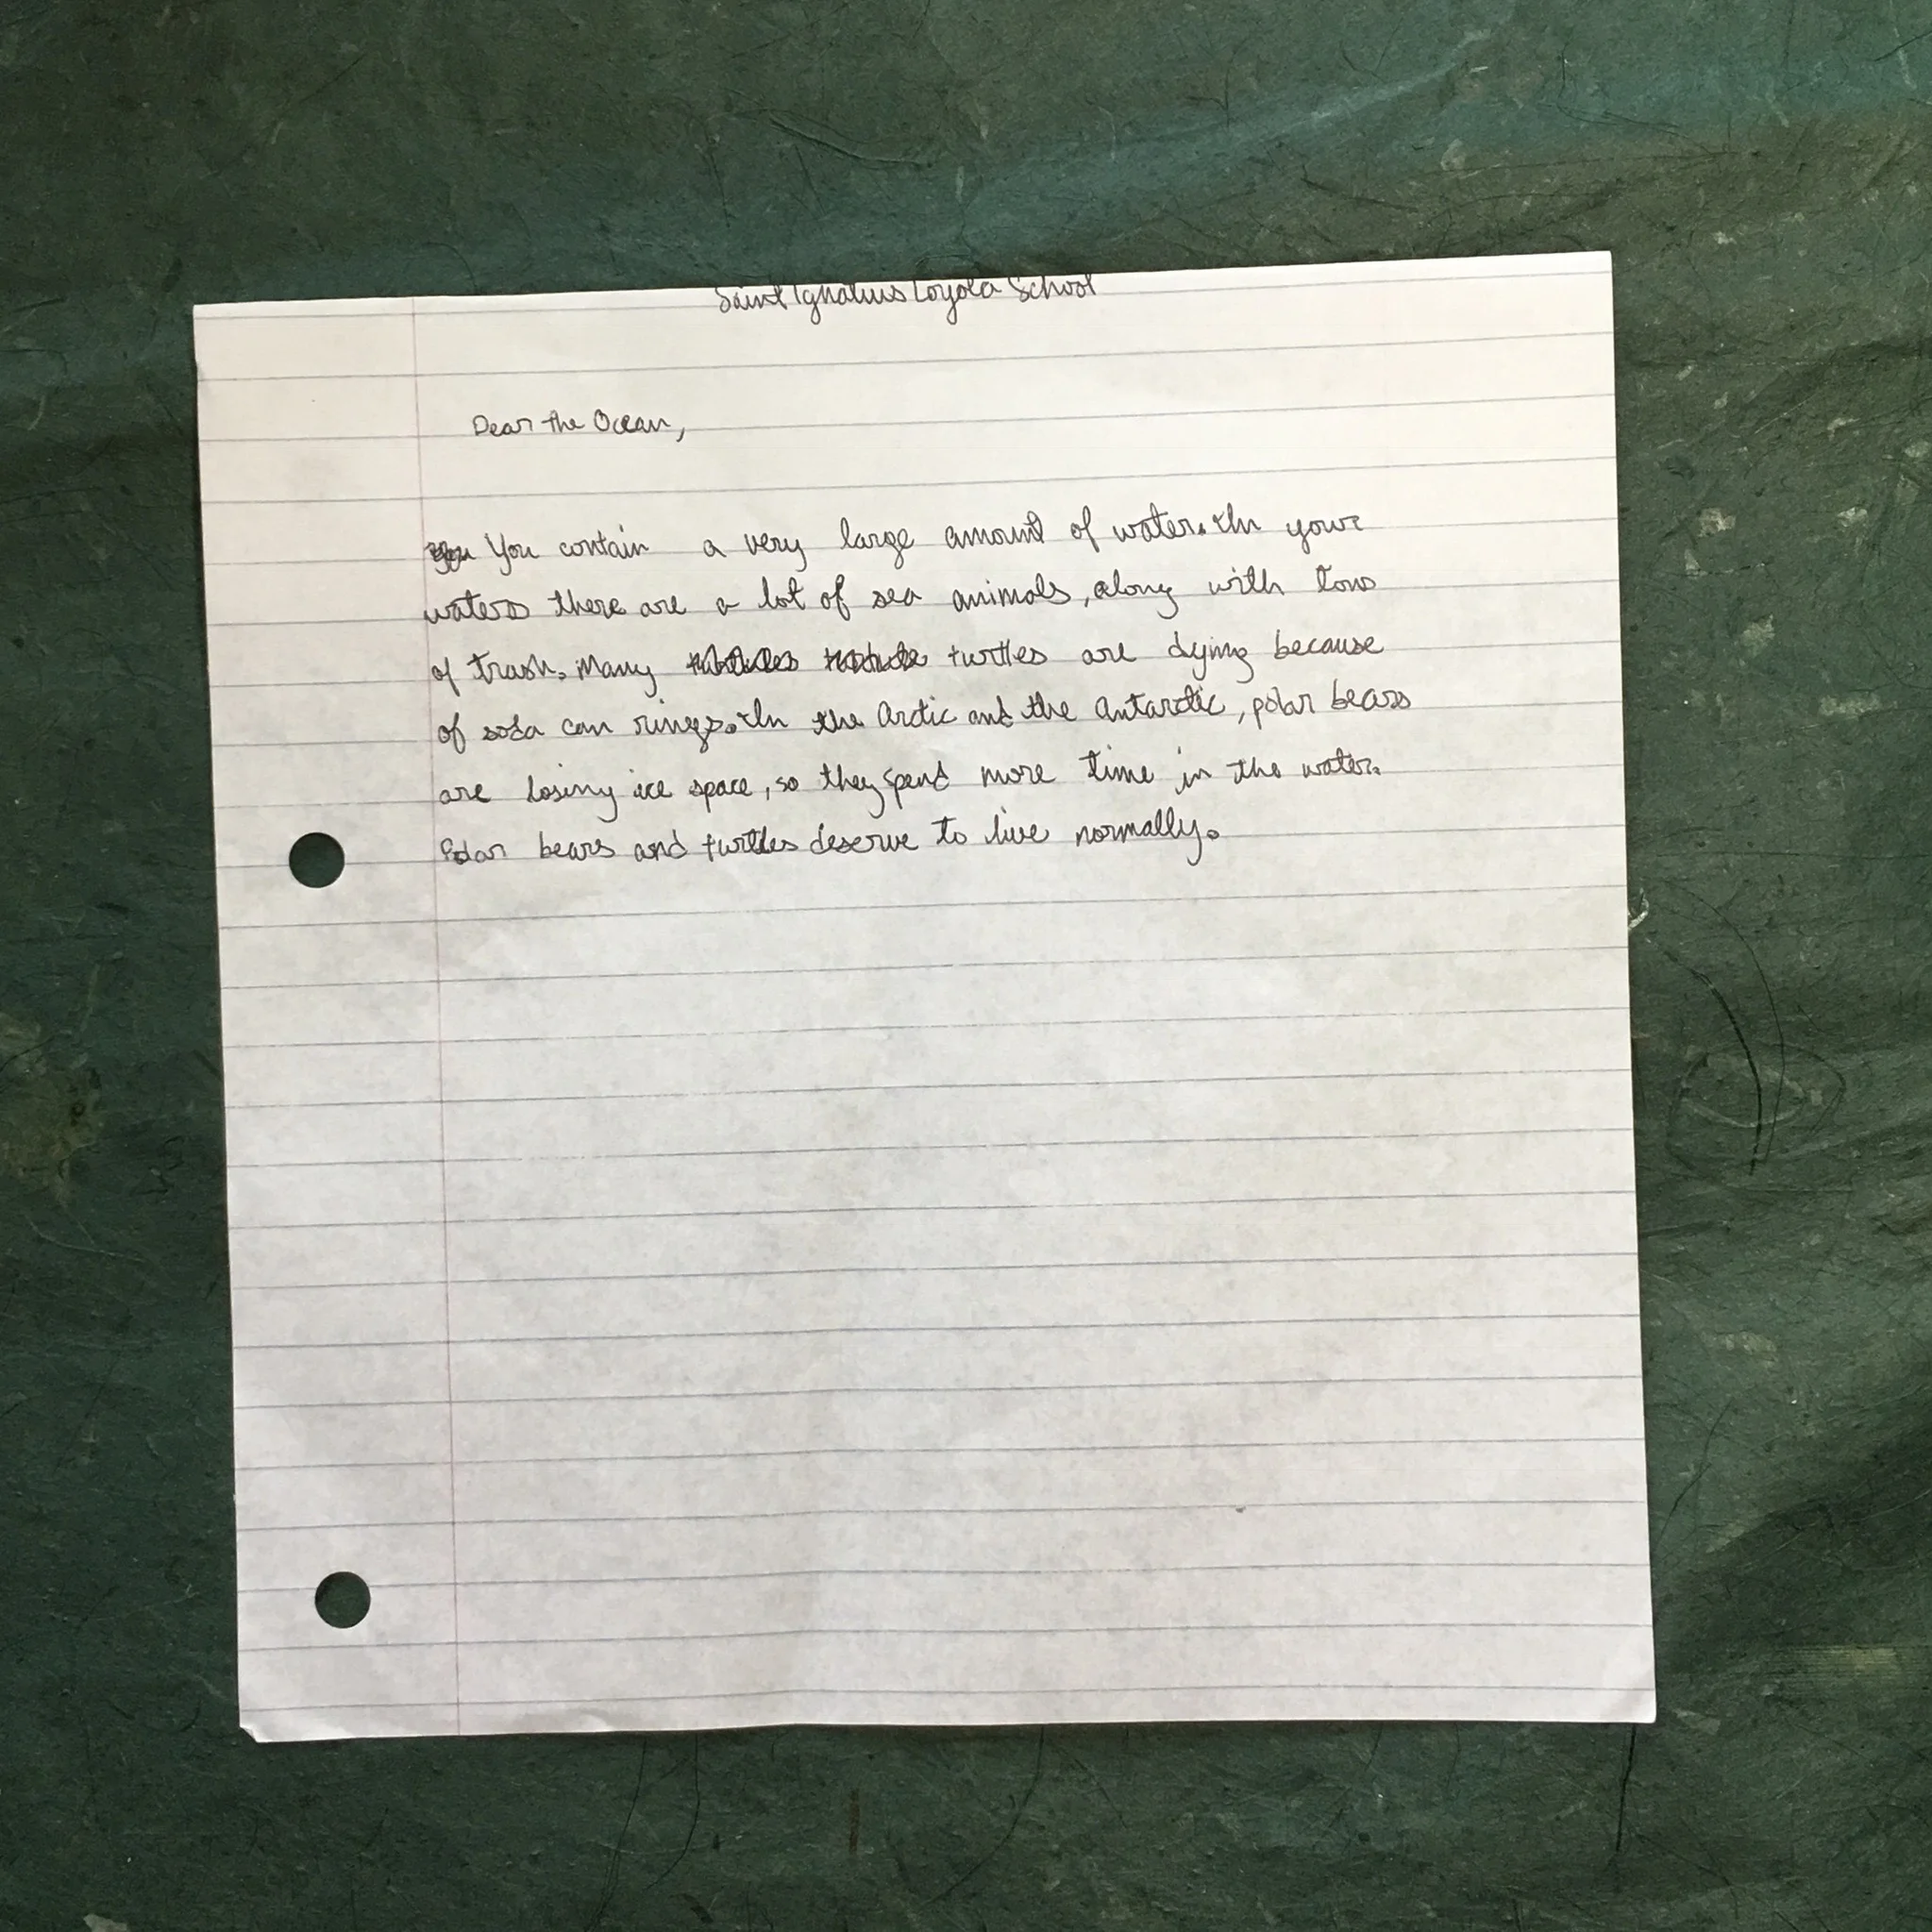 Saint Ignatius Loyola School
Dear the Ocean,
You You contain a very large amount of water. In your
waters there are a lot of sea animals, along with tons
of trash. Many turtles are dying because
of soda can rings. In the Arctic and the Antarctic, polar bears
are losing ice space, so they spend more time in the water.
Polar bears and turtles deserve to live normally.